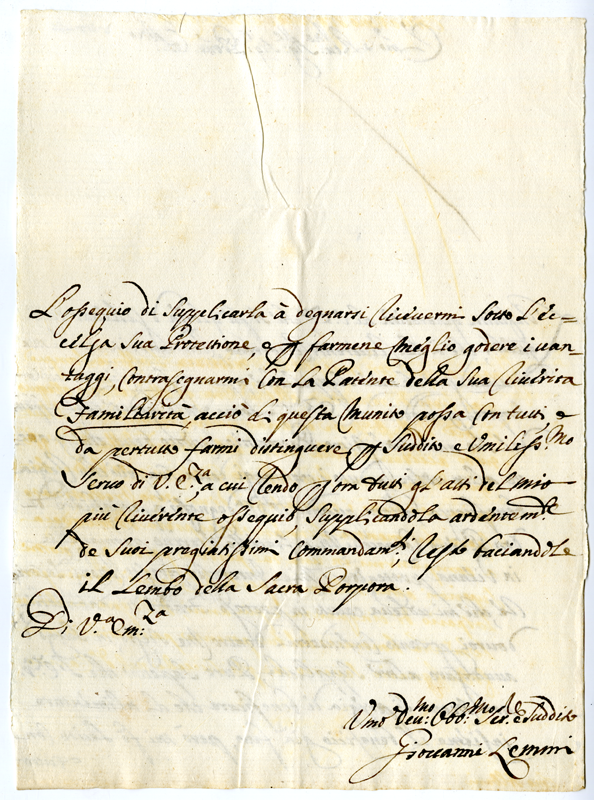 L'ossequio di supplicarla à degnarsi riceuermi sotto L'ec=
celsa sua Protettione, e p farmene meglio godere i uan=
taggi, contrasegnarmi con La Patente della sua riuerita
Familiarità, acciò di questa munito possa con tutti e
da pertutto farmi distinguere p suddito e Vmiliss.mo
seruo di V. E.za, a cui rendo p ora tutti gl'atti del mio
più riuerente ossequio, supplicandola ardentem.te
de suoi pregiatissimi commandam.ti, resto baciandole
il Lembo della Sacra Porpora.
Di V.a Em.za
Vmo Deu.mo Obb.mo Ser.e e suddito
Giouanni Lemmi